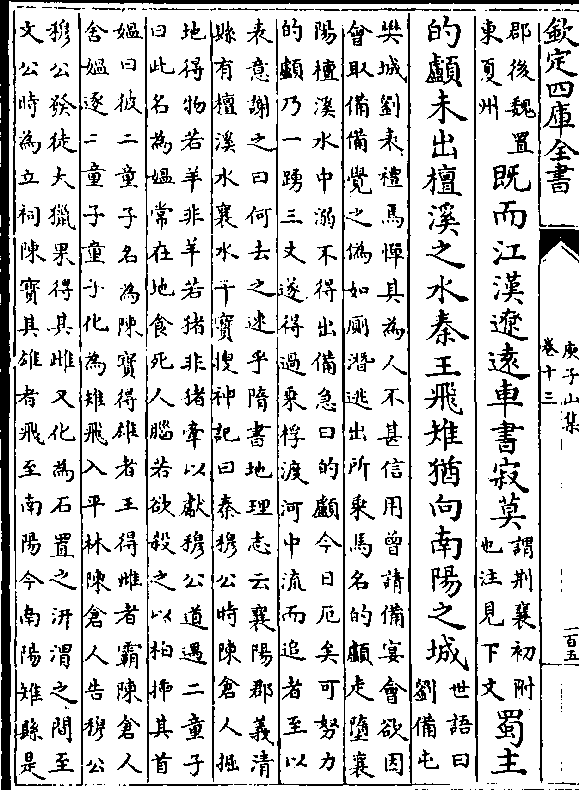 欽定四庫全書
庾子山集
卷十三
一百五
郡後魏置
東夏州
既而江漢遼遠車書寂莫
謂荆襄初附
也注見下文
蜀主
的顱未出檀溪之水秦王飛雉猶向南陽之城
世語曰
劉備屯
樊城劉表禮焉憚其為人不甚信用曾請備宴會欲因
會取備備覺之偽如厠潛逃出所乗馬名的顱走墮襄
陽檀溪水中溺不得出備急曰的顱今日厄矣可努力
的顱乃一踴三丈遂得過乗桴渡河中流而追者至以
表意謝之曰何去之速乎隋書地理志云襄陽郡義清
縣有檀溪水襄水干寳搜神記曰秦穆公時陳倉人掘
地得物若羊非羊若猪非猪牽以獻穆公道遇二童子
曰此名為媪常在地食死人腦若欲殺之以柏揷其首
媪曰彼二童子名為陳寳得雄者王得雌者霸陳倉人
舍媪逐二童子童子化為雉飛入平林陳倉人告穆公
穆公發徒大獵果得其雌又化為石置之汧渭之間至
文公時為立祠陳寳其雄者飛至南陽今南陽雉縣是